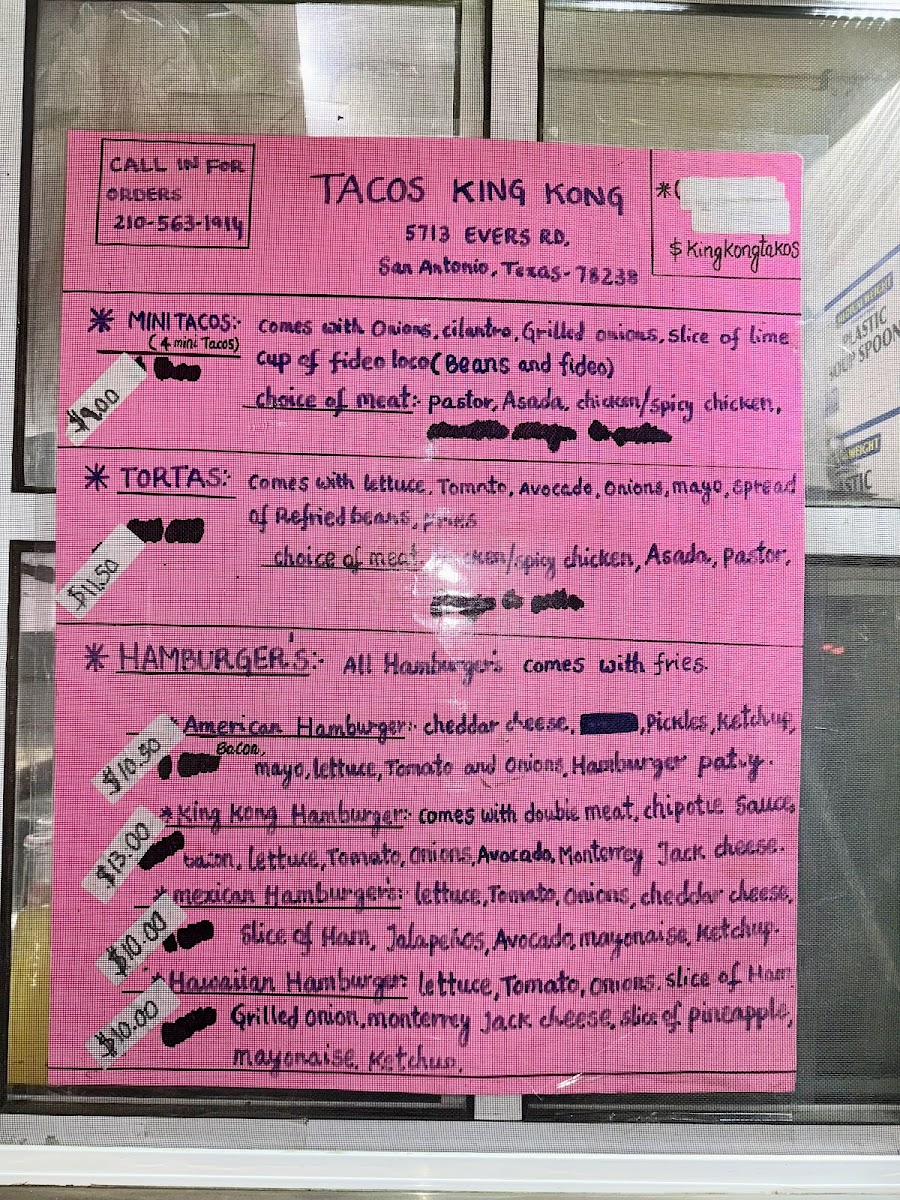 CALL IN FOR
ORDERS
210-563-1914
TACOS KING KONG
5713 EVERS RD,
San Antonio, Texas-78238
*(
$Kingkongtakos
* MINI TACOS:- comes with Onions, cilantro, Grilled onions, slice of lime
(4 mini Tacos)
cup of fideo loco (Beans and fideo)
$9.00
choice of meat:- pastor, Asada, chicken/spicy chicken,
* TORTAS:- comes with lettuce, Tomato, Avocado, onions, mayo, spread
of Refried beans, Fries
$11.50
choice of meat chicken/spicy chicken, Asada, Pastor,
* HAMBURGER'S:- All Hamburger's comes with fries.
* American Hamburger:- cheddar cheese, , Pickles, Ketchup,
$10.50
Bacon,
mayo, lettuce, Tomato and onions, Hamburger paty.
* King Kong Hamburger:- comes with double meat, chipotle sauce,
$13.00
bacon, lettuce, Tomato, onions, Avocado, Monterrey Jack cheese.
* mexican Hamburger's:- lettuce, Tomato, onions, cheddar cheese,
$10.00
slice of Ham, Jalapeños, Avocado, mayonaise, Ketchup.
* Hawaiian Hamburger: lettuce, Tomato, onions, slice of Ham
$10.00
Grilled onion, monterrey Jack cheese, slice of pineapple,
mayonaise, Ketchup.
PLASTIC
SOUP SPOON
WEIGHT
STIC